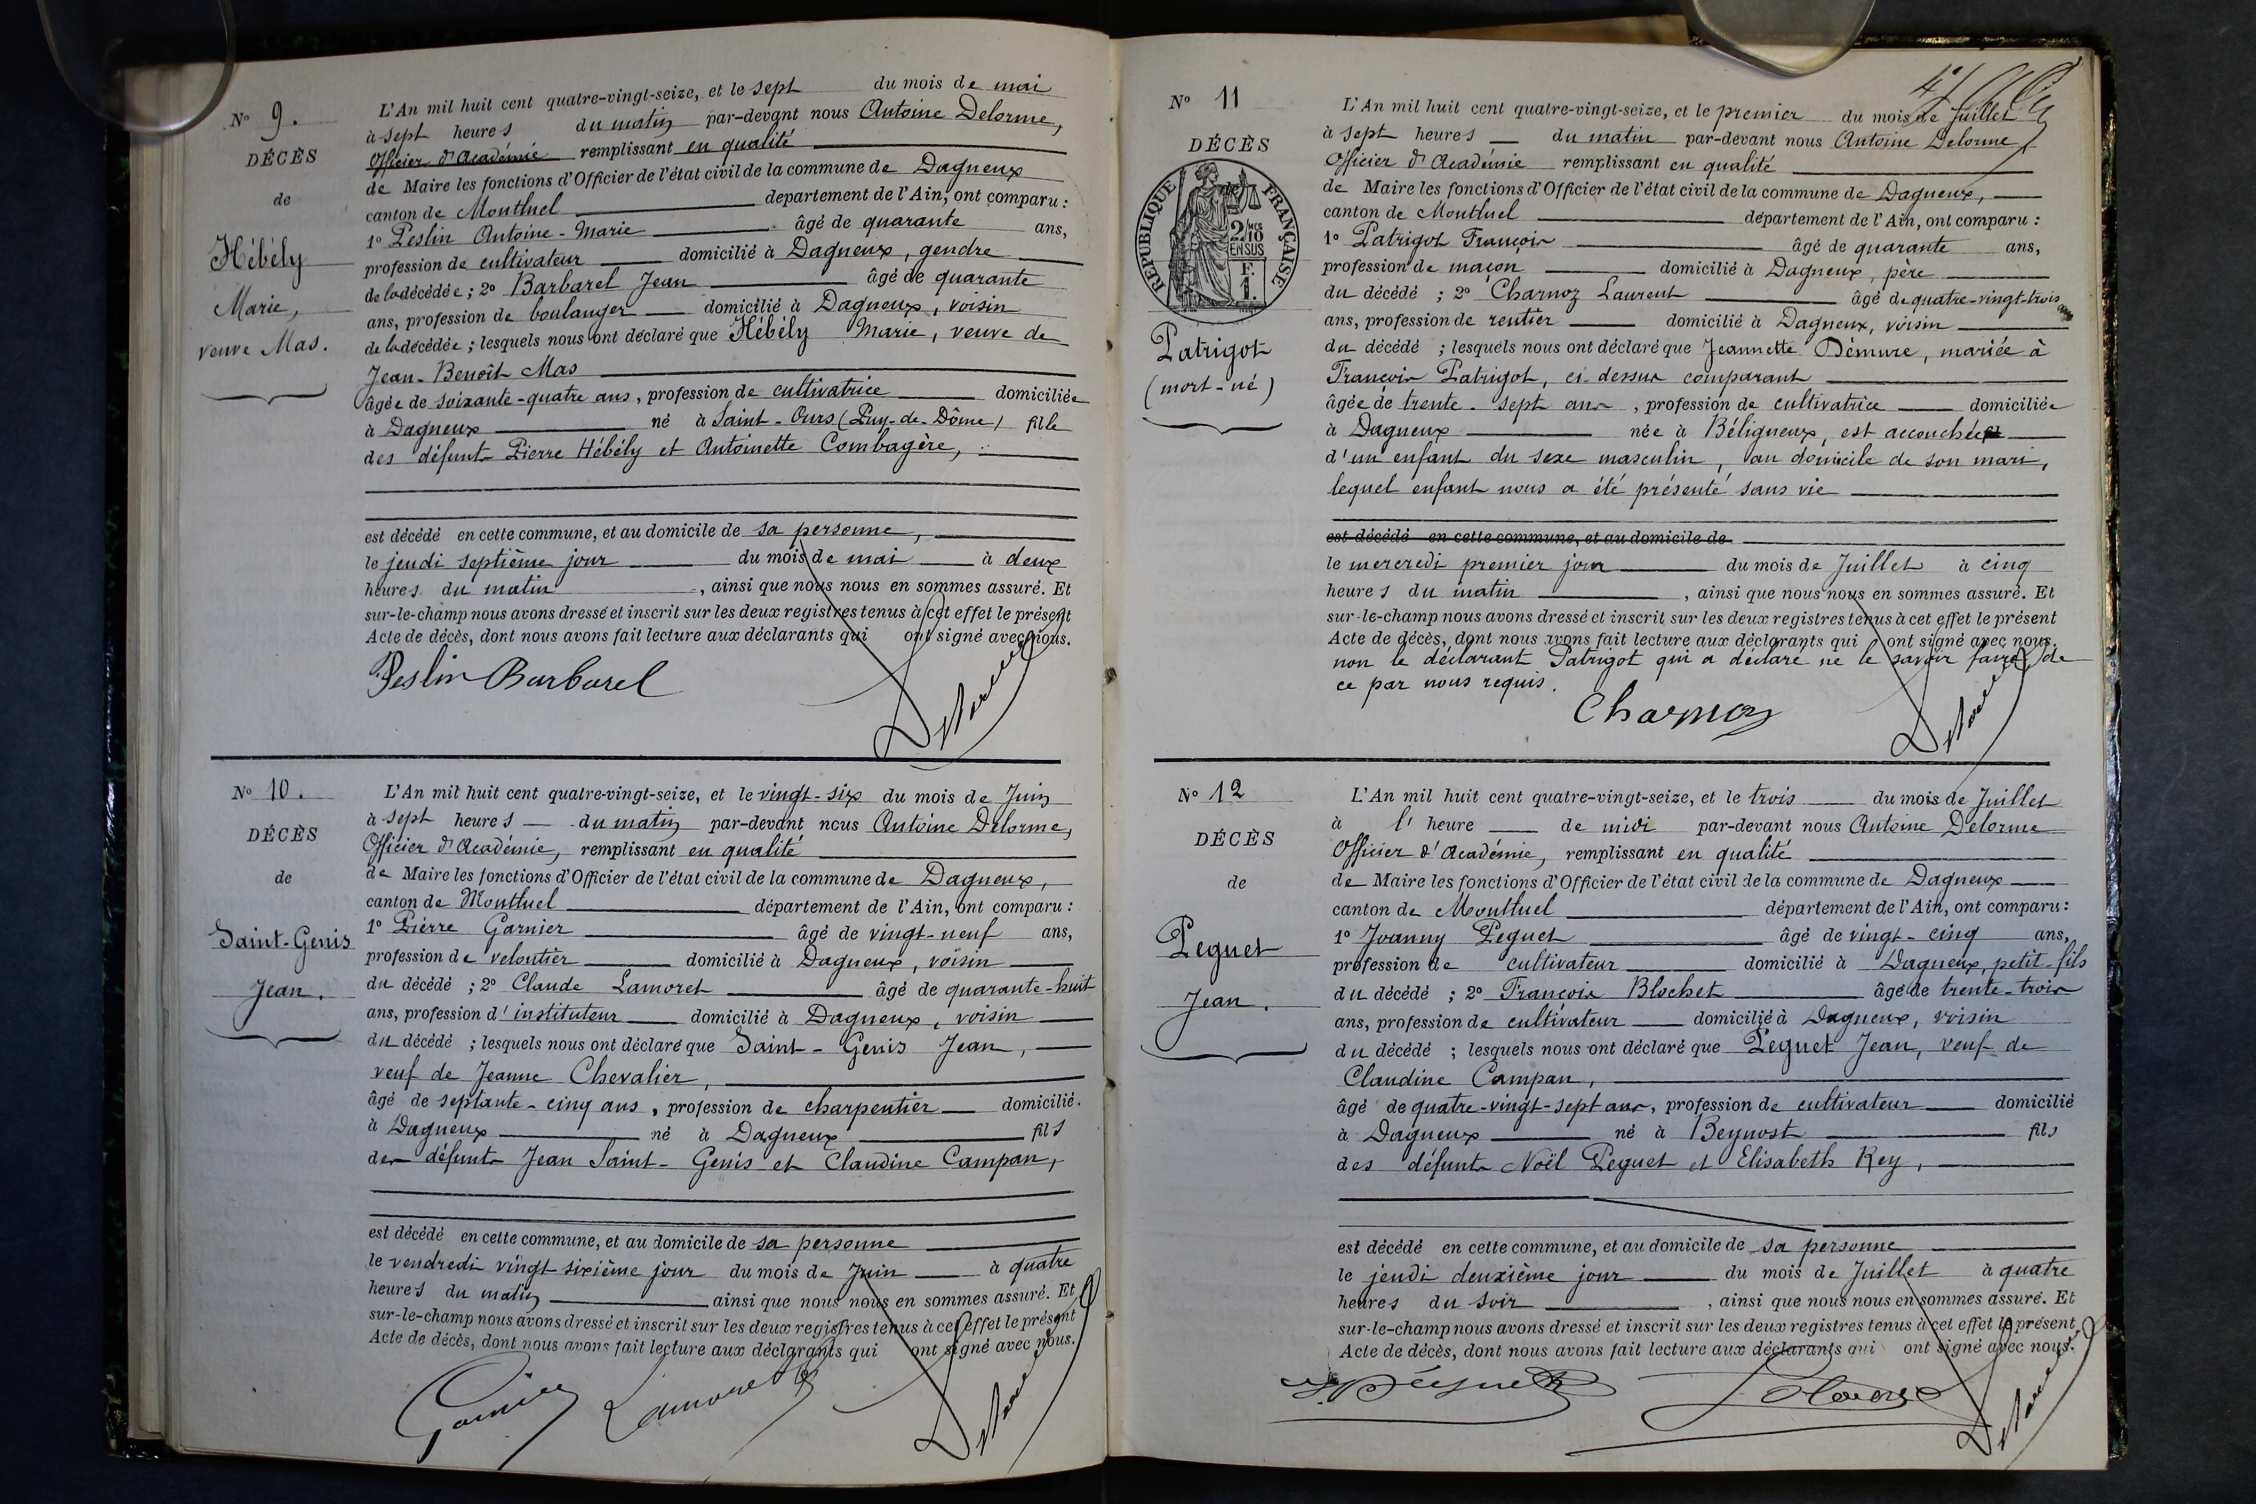 N° 9.
DÉCÈS
de
Hébély
Marie,
veuve Mas.
L'An mil huit cent quatre-vingt-seize, et le sept du mois de mai
à sept heures du matin par-devant nous Antoine Delorme,
Officier d'Académie remplissant en qualité
de Maire les fonctions d'Officier de l'état civil de la commune de Dagneux
canton de Montluel departement de l'Ain, ont comparu :
1° Peslin Antoine-Marie âgé de quarante ans,
profession de cultivateur domicilié à Dagneux, gendre
de la décédée ; 2° Barbarel Jean âgé de quarante
ans, profession de boulanger domicilié à Dagneux, voisin
de la décédée ; lesquels nous ont déclaré que Hébély Marie, veuve de
Jean-Benoît Mas
âgée de soixante-quatre ans, profession de cultivatrice domiciliée
à Dagneux né à Saint-Ours (Puy-de-Dôme) fille
des défunts Pierre Hébély et Antoinette Combagère,
est décédé en cette commune, et au domicile de sa personne,
le jeudi septième jour du mois de mai à deux
heures du matin, ainsi que nous nous en sommes assuré. Et
sur-le-champ nous avons dressé et inscrit sur les deux registres tenus à cet effet le présent
Acte de décès, dont nous avons fait lecture aux déclarants qui ont signé avec nous.
Peslin Barbarel Delorme
N° 10.
DÉCÈS
de
Saint-Genis
Jean.
L'An mil huit cent quatre-vingt-seize, et le vingt-six du mois de Juin
à sept heures du matin par-devant nous Antoine Delorme,
Officier d'Académie, remplissant en qualité
de Maire les fonctions d'Officier de l'état civil de la commune de Dagneux,
canton de Montluel département de l'Ain, ont comparu :
1° Pierre Garnier âgé de vingt-neuf ans,
profession de veloutier domicilié à Dagneux, voisin
du décédé ; 2° Claude Lamoret âgé de quarante-huit
ans, profession d'instituteur domicilié à Dagneux, voisin
du décédé ; lesquels nous ont déclaré que Saint-Genis Jean,
veuf de Jeanne Chevalier,
âgé de septante-cinq ans, profession de charpentier domicilié
à Dagneux né à Dagneux fils
des défunts Jean Saint-Genis et Claudine Campan,
est décédé en cette commune, et au domicile de sa personne
le vendredi vingt sixième jour du mois de Juin à quatre
heures du matin ainsi que nous nous en sommes assuré. Et
sur-le-champ nous avons dressé et inscrit sur les deux registres tenus à cet effet le présent
Acte de décès, dont nous avons fait lecture aux déclarants qui ont signé avec nous.
Garnier Lamoret Delorme
N° 11
DÉCÈS
RÉPUBLIQUE FRANÇAISE
2/10 EN SUS
F. 1.
Patrigot
(mort-né)
L'An mil huit cent quatre-vingt-seize, et le premier du mois de Juillet
à sept heures du matin par-devant nous Antoine Delorme,
Officier d'Académie remplissant en qualité
de Maire les fonctions d'Officier de l'état civil de la commune de Dagneux,
canton de Montluel département de l'Ain, ont comparu :
1° Patrigot François âgé de quarante ans,
profession de maçon domicilié à Dagneux, père
du décédé ; 2° Charnoz Laurent âgé de quatre-vingt-trois
ans, profession de rentier domicilié à Dagneux, voisin
du décédé ; lesquels nous ont déclaré que Jeannette Démure, mariée à
François Patrigot, ci-dessus comparant
âgée de trente-sept ans, profession de cultivatrice domiciliée
à Dagneux née à Béligneux, est accouchée
d'un enfant du sexe masculin, au domicile de son mari,
lequel enfant nous a été présenté sans vie
est décédé en cette commune, et au domicile de
le mercredi premier jour du mois de Juillet à cinq
heures du matin, ainsi que nous nous en sommes assuré. Et
sur-le-champ nous avons dressé et inscrit sur les deux registres tenus à cet effet le présent
Acte de décès, dont nous avons fait lecture aux déclarants qui ont signé avec nous.
non le déclarant Patrigot qui a déclaré ne le savoir faire de
ce par nous requis.
Charnoz Delorme
N° 12
DÉCÈS
de
Peguet
Jean.
L'An mil huit cent quatre-vingt-seize, et le trois du mois de Juillet
à l'heure de midi par-devant nous Antoine Delorme
Officier d'Académie, remplissant en qualité
de Maire les fonctions d'Officier de l'état civil de la commune de Dagneux
canton de Montluel département de l'Ain, ont comparu :
1° Joanny Peguet âgé de vingt-cinq ans,
profession de cultivateur domicilié à Dagneux, petit-fils
du décédé ; 2° François Blochet âgé de trente-trois
ans, profession de cultivateur domicilié à Dagneux, voisin
du décédé ; lesquels nous ont déclaré que Peguet Jean, veuf de
Claudine Campan,
âgé de quatre-vingt-sept ans, profession de cultivateur domicilié
à Dagneux né à Beynost fils
des défunts Noël Peguet et Elisabeth Rey,
est décédé en cette commune, et au domicile de sa personne
le jeudi deuxième jour du mois de Juillet à quatre
heures du soir, ainsi que nous nous en sommes assuré. Et
sur-le-champ nous avons dressé et inscrit sur les deux registres tenus à cet effet le présent
Acte de décès, dont nous avons fait lecture aux déclarants qui ont signé avec nous.
Delorme